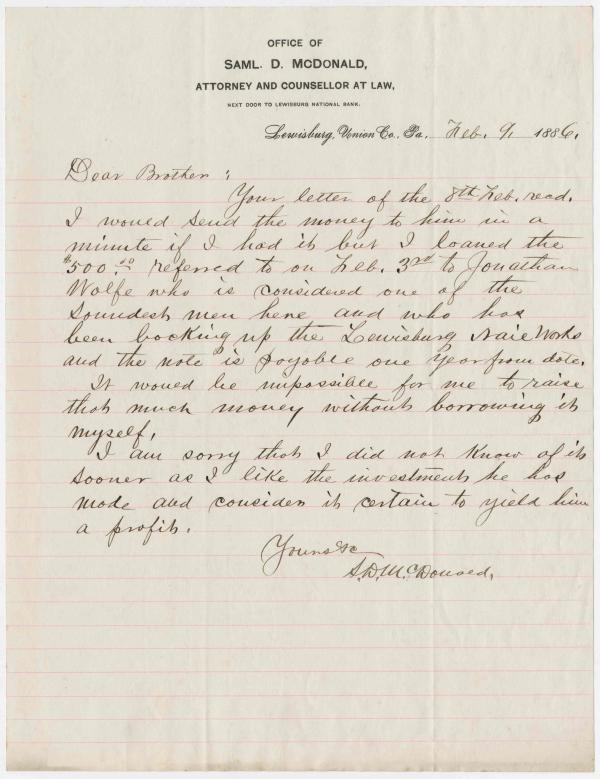 OFFICE OF
SAML. D. McDONALD,
ATTORNEY AND COUNSELLOR AT LAW,
NEXT DOOR TO LEWISBURG NATIONAL BANK.
Lewisburg, Union Co., Pa., Feb. 9, 1886.
Dear Brother:
Your letter of the 8th Feb. recd.
I would send the money to him in a
minute if I had it but I loaned the
$500.00 referred to on Feb. 3rd to Jonathan
Wolfe who is considered one of the
soundest men here and who has
been backing up the Lewisburg Nail Works
and the note is payable one year from date.
It would be impossible for me to raise
that much money without borrowing it
myself.
I am sorry that I did not know of it
sooner as I like the investment he has
made and consider it certain to yield him
a profit.
Yours &c
S.D. McDonald.